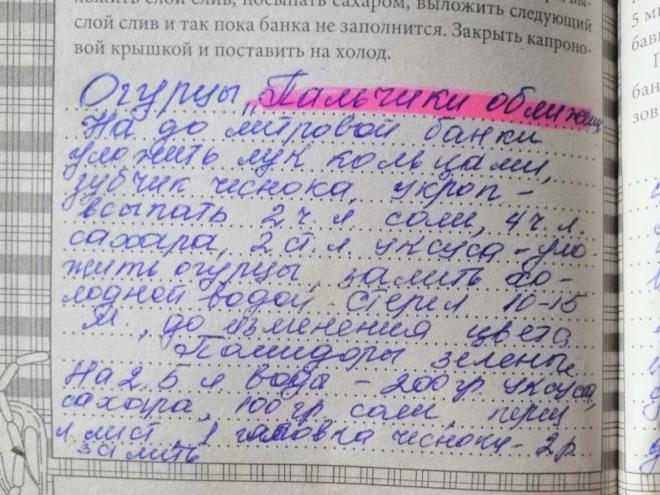 ложить слой слив, посыпать сахаром, выложить следующий
слой слив и так пока банка не заполнится. Закрыть капроно-
вой крышкой и поставить на холод.
Огурцы "Пальчики оближеш
На до литровой банки
уложить лук кольцами,
зубчик чеснока, укроп -
всыпать 2 ч л соли, 4 ч. л.
сахара, 2 ст. л. уксуса - уло-
жить огурцы, залить хо-
лодной водой Стерил 10-15
м, до изменения цвета
Помидоры зеленые
На 2,5 л вода - 200 гр уксуса,
сахара, 100 гр соли, перец
л лист, 1 головка чесноку - 2 р
залить
5 ми
бан
зов